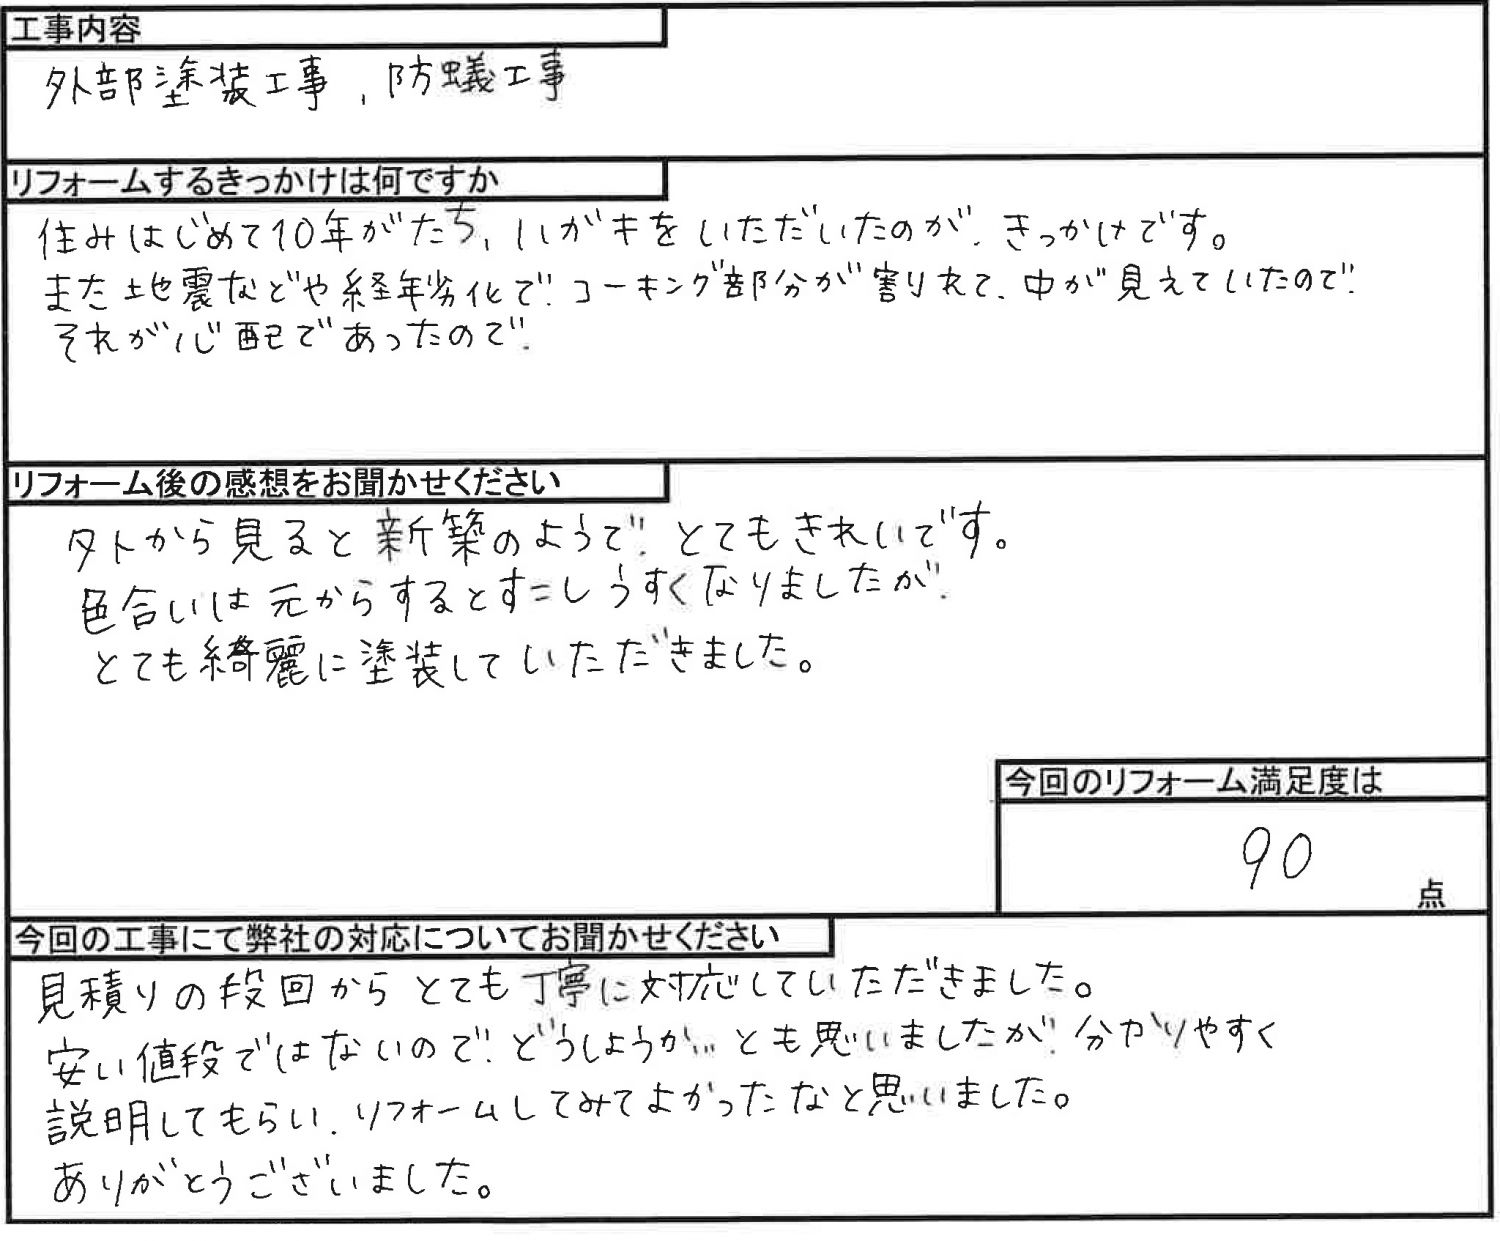 工事内容
外部塗装工事、防蟻工事
リフォームするきっかけは何ですか
住みはじめて10年がたち、ハガキをいただいたのが、きっかけです。
また地震などや経年劣化で、コーキング部分が割れて、中が見えていたので、
それが心配であったので、
リフォーム後の感想をお聞かせください
外から見ると新築のようで、とてもきれいです。
色合いは元からするとすこしうすくなりましたが、
とても綺麗に塗装していただきました。
今回のリフォーム満足度は
90
点
今回の工事にて弊社の対応についてお聞かせください
見積りの段回からとても丁寧に対応していただきました。
安い値段ではないので、どうしようか…とも思いましたが、分かりやすく
説明してもらい、リフォームしてみてよかったなと思いました。
ありがとうございました。